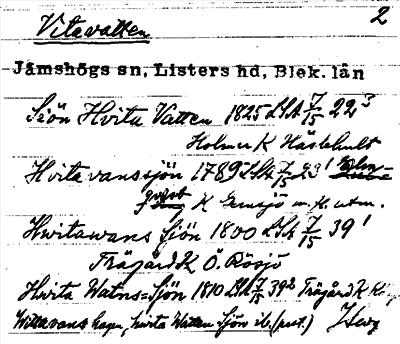 2
Vitavatten
Jämshögs sn, Listers hd, Blek. län
Sjön Hvita Vatten 1825 LSA 7/15 22³
Holmer K Hästehult
Hvitavanssjön 1789 LSA 7/15 23¹
K Grusjö m. fl. utm.
Hwitawans Sjön 1800 LSA 7/15 39¹
Trägård K Ö. Rösjö
Hwita Watns=Sjön 1810 LSA 7/15 39² Trägård K
Wittavans hage, hvita Watten Sjön ib. (put.)